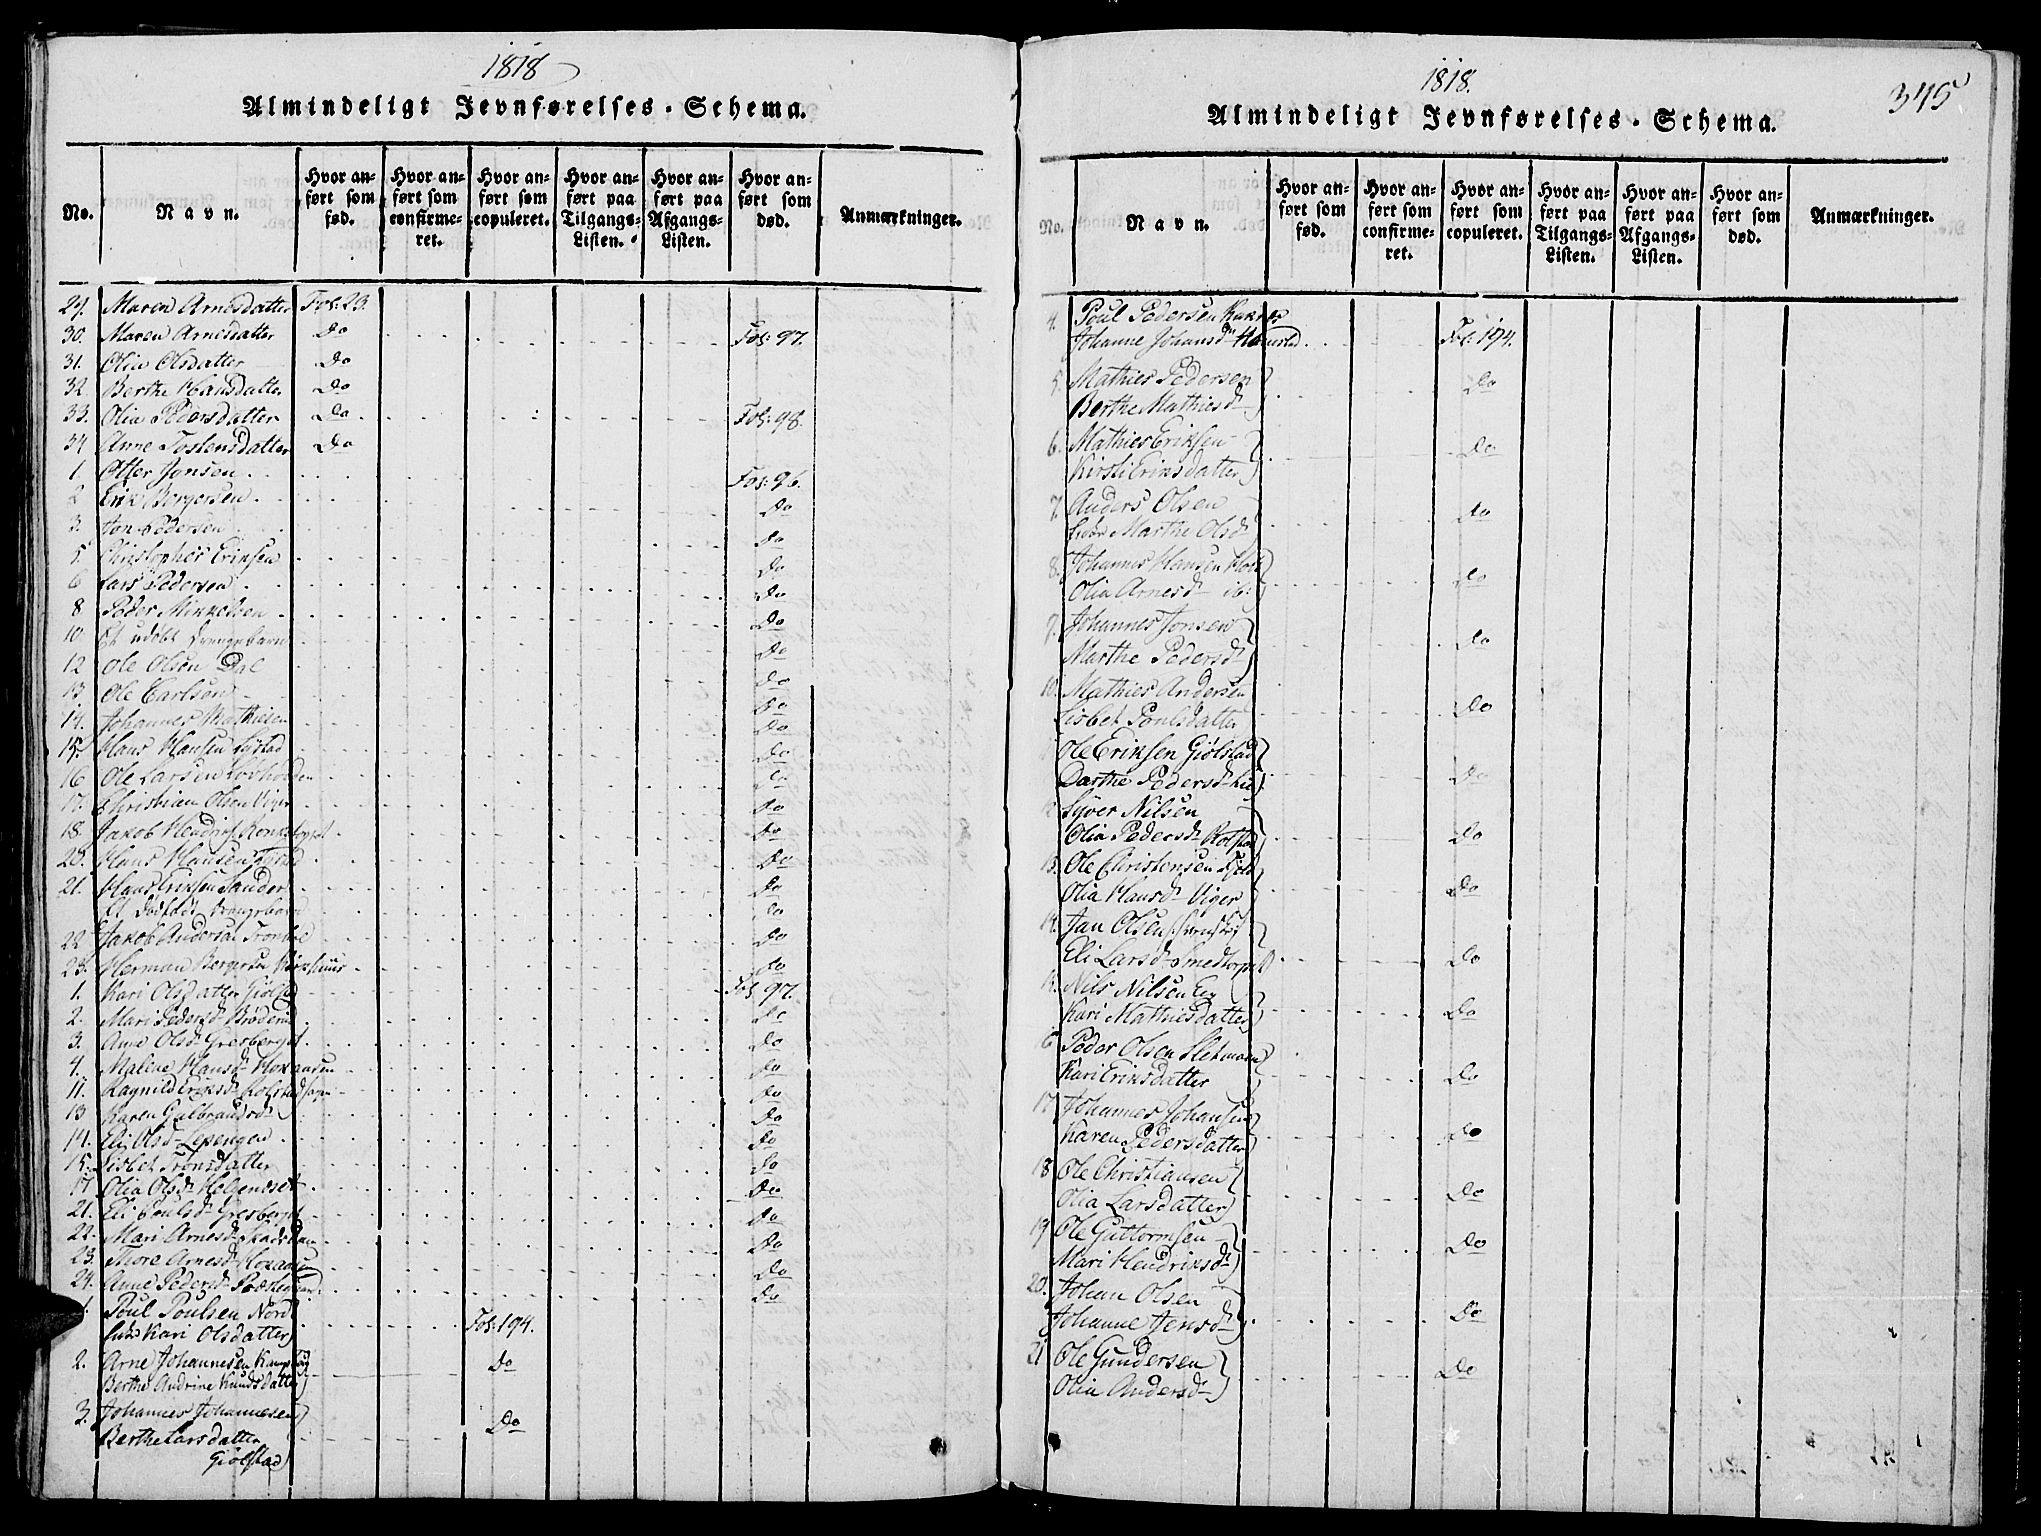 1818
Almindeligt Jevnførelses-Schema.
No. Navn. Hvor anført som fød. Hvor anført som confirmeret. Hvor anført som copuleret. Hvor anført paa Tilgangs-Listen. Hvor anført paa Afgangs-Listen. Hvor anført som død. Anmærkninger.
29. Maren Arnesdatter Fol: 23.
30. Maren Arnesdatter Do Fol: 97.
31. Olia Olsdatter Do
32. Berthe Hansdatter Do
33. Olia Pedersdatter Do Fol: 98.
34 Anne Tostensdatter Do
1. Otter Jonsen Fol: 96.
2 Erik Bergersen Do
3. Jon Pedersen Do
5. Christopher Eriksen Do
6 Lars Pedersen Do
8 Peder Mikkelsen Do
10. Et udøbt Drengebarn Do
12 Ole Olsen Dal Do
13 Ole Carlsen Do
14. Johannes Mathiesen Do
15. Hans Hansen Do
16 Ole Larsen Do
17. Christian Olsen Viger Do
18. Jakob Do
20. Hans Hansen Do
21. Hans Eriksen Sander Do
Et dødfød Drengebarn Do
22 Jakob Andersen Do
23. Herman Bergersen Do
1. Kari Olsdatter Giølstad Fol. 97.
2. Mari Pedersd Do
3. Ane Olsd Gresberget Do
4. Malene Hansd Do
11. Ragnild Eriksd Do
13 Karen Gulbrandsd Do
14. Eli Olsd Do
15. Lisbet Tronsdatter Do
17 Olia Olsd Do
21. Eli Poulsd Gresberget Do
22. Mari Arnesd Do
23. Thore Arnesd Do
24. Anne Pedersd Do
1. Poul Poulsen Nord
Kari Olsdatter Fol: 194.
2. Arne Johannesen Do
Berthe Andrine Knudsdatter
3. Johannes Johannesen Do
Berthe Larsdatter
Giølstad
1818.
345
Almindeligt Jevnførelses-Schema.
No. Navn. Hvor anført som fød. Hvor anført som confirmeret. Hvor anført som copuleret. Hvor anført paa Tilgangs-Listen. Hvor anført paa Afgangs-Listen. Hvor anført som død. Anmærkninger.
4. Poul Pedersen
Johanne Johansd Fol: 194.
5. Mathies Pedersen Do
Berthe Mathiesd
6. Mathies Eriksen Do
Kirsti Eriksdatter
7. Anders Olsen Do
Marthe Olsd
8. Johannes Hansen Do
Olia Arnesd ib:
9. Johannes Jonsen Do
Marthe Pedersd
10. Mathies Andersen Do
Lisbet Poulsdatter
Ole Eriksen Giølstad
Dorthe Pedersd Do
Syver Nilsen
Olia Pedersd Rolstad Do
13. Ole Christensen
Olia Hansd Viger Do
14. Jan Olsen
Eli Larsd Smedtorpet Do
Nils Nilsen
Kari Mathiesdatter Do
Peder Olsen Sletmoen
Kari Eriksdatter Do
17. Johannes Johansen
Karen Pedersdatter Do
18 Ole Christiansen
Olia Larsdatter Do
19 Ole Guttormsen
Mari Hendriksd Do
20. Johan Olsen
Johanne Jensd Do
21 Ole Gundersen Do
Olia Andersd